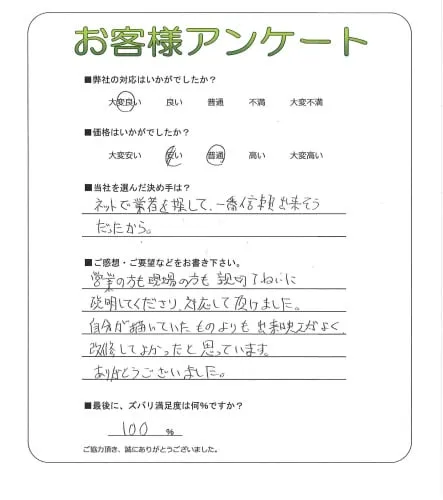 お客様アンケート
■弊社の対応はいかがでしたか?
大変良い 良い 普通 不満 大変不満
■価格はいかがでしたか?
大変安い 安い 普通 高い 大変高い
■当社を選んだ決め手は?
ネットで業者を探して、一番信頼出来そう
だったから。
■ご感想・ご要望などをお書き下さい。
営業の方も現場の方も親切ていねいに
説明してくださり、対応して頂けました。
自分が描いていたものよりも出来映えがよく、
改修してよかったと思っています。
ありがとうございました。
■最後に、ズバリ満足度は何%ですか?
100 %
ご協力頂き、誠にありがとうございました。